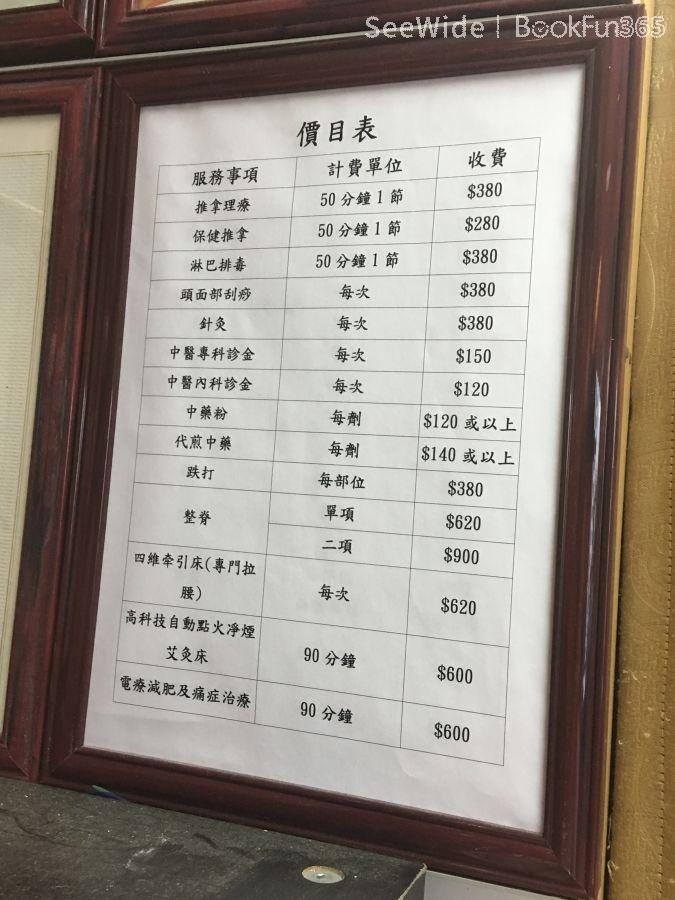 SeeWide | BookFun365
價目表
服務事項 計費單位 收費
推拿理療 50 分鐘 1 節 $380
保健推拿 50 分鐘 1 節 $280
淋巴排毒 50 分鐘 1 節 $380
頭面部刮痧 每次 $380
針灸 每次 $380
中醫專科診金 每次 $150
中醫內科診金 每次 $120
中藥粉 每劑 $120 或以上
代煎中藥 每劑 $140 或以上
跌打 每部位 $380
整脊 單項 $620
二項 $900
四維牽引床(專門拉
腰) 每次 $620
高科技自動點火凈煙
艾灸床 90 分鐘 $600
電療減肥及痛症治療 90 分鐘 $600